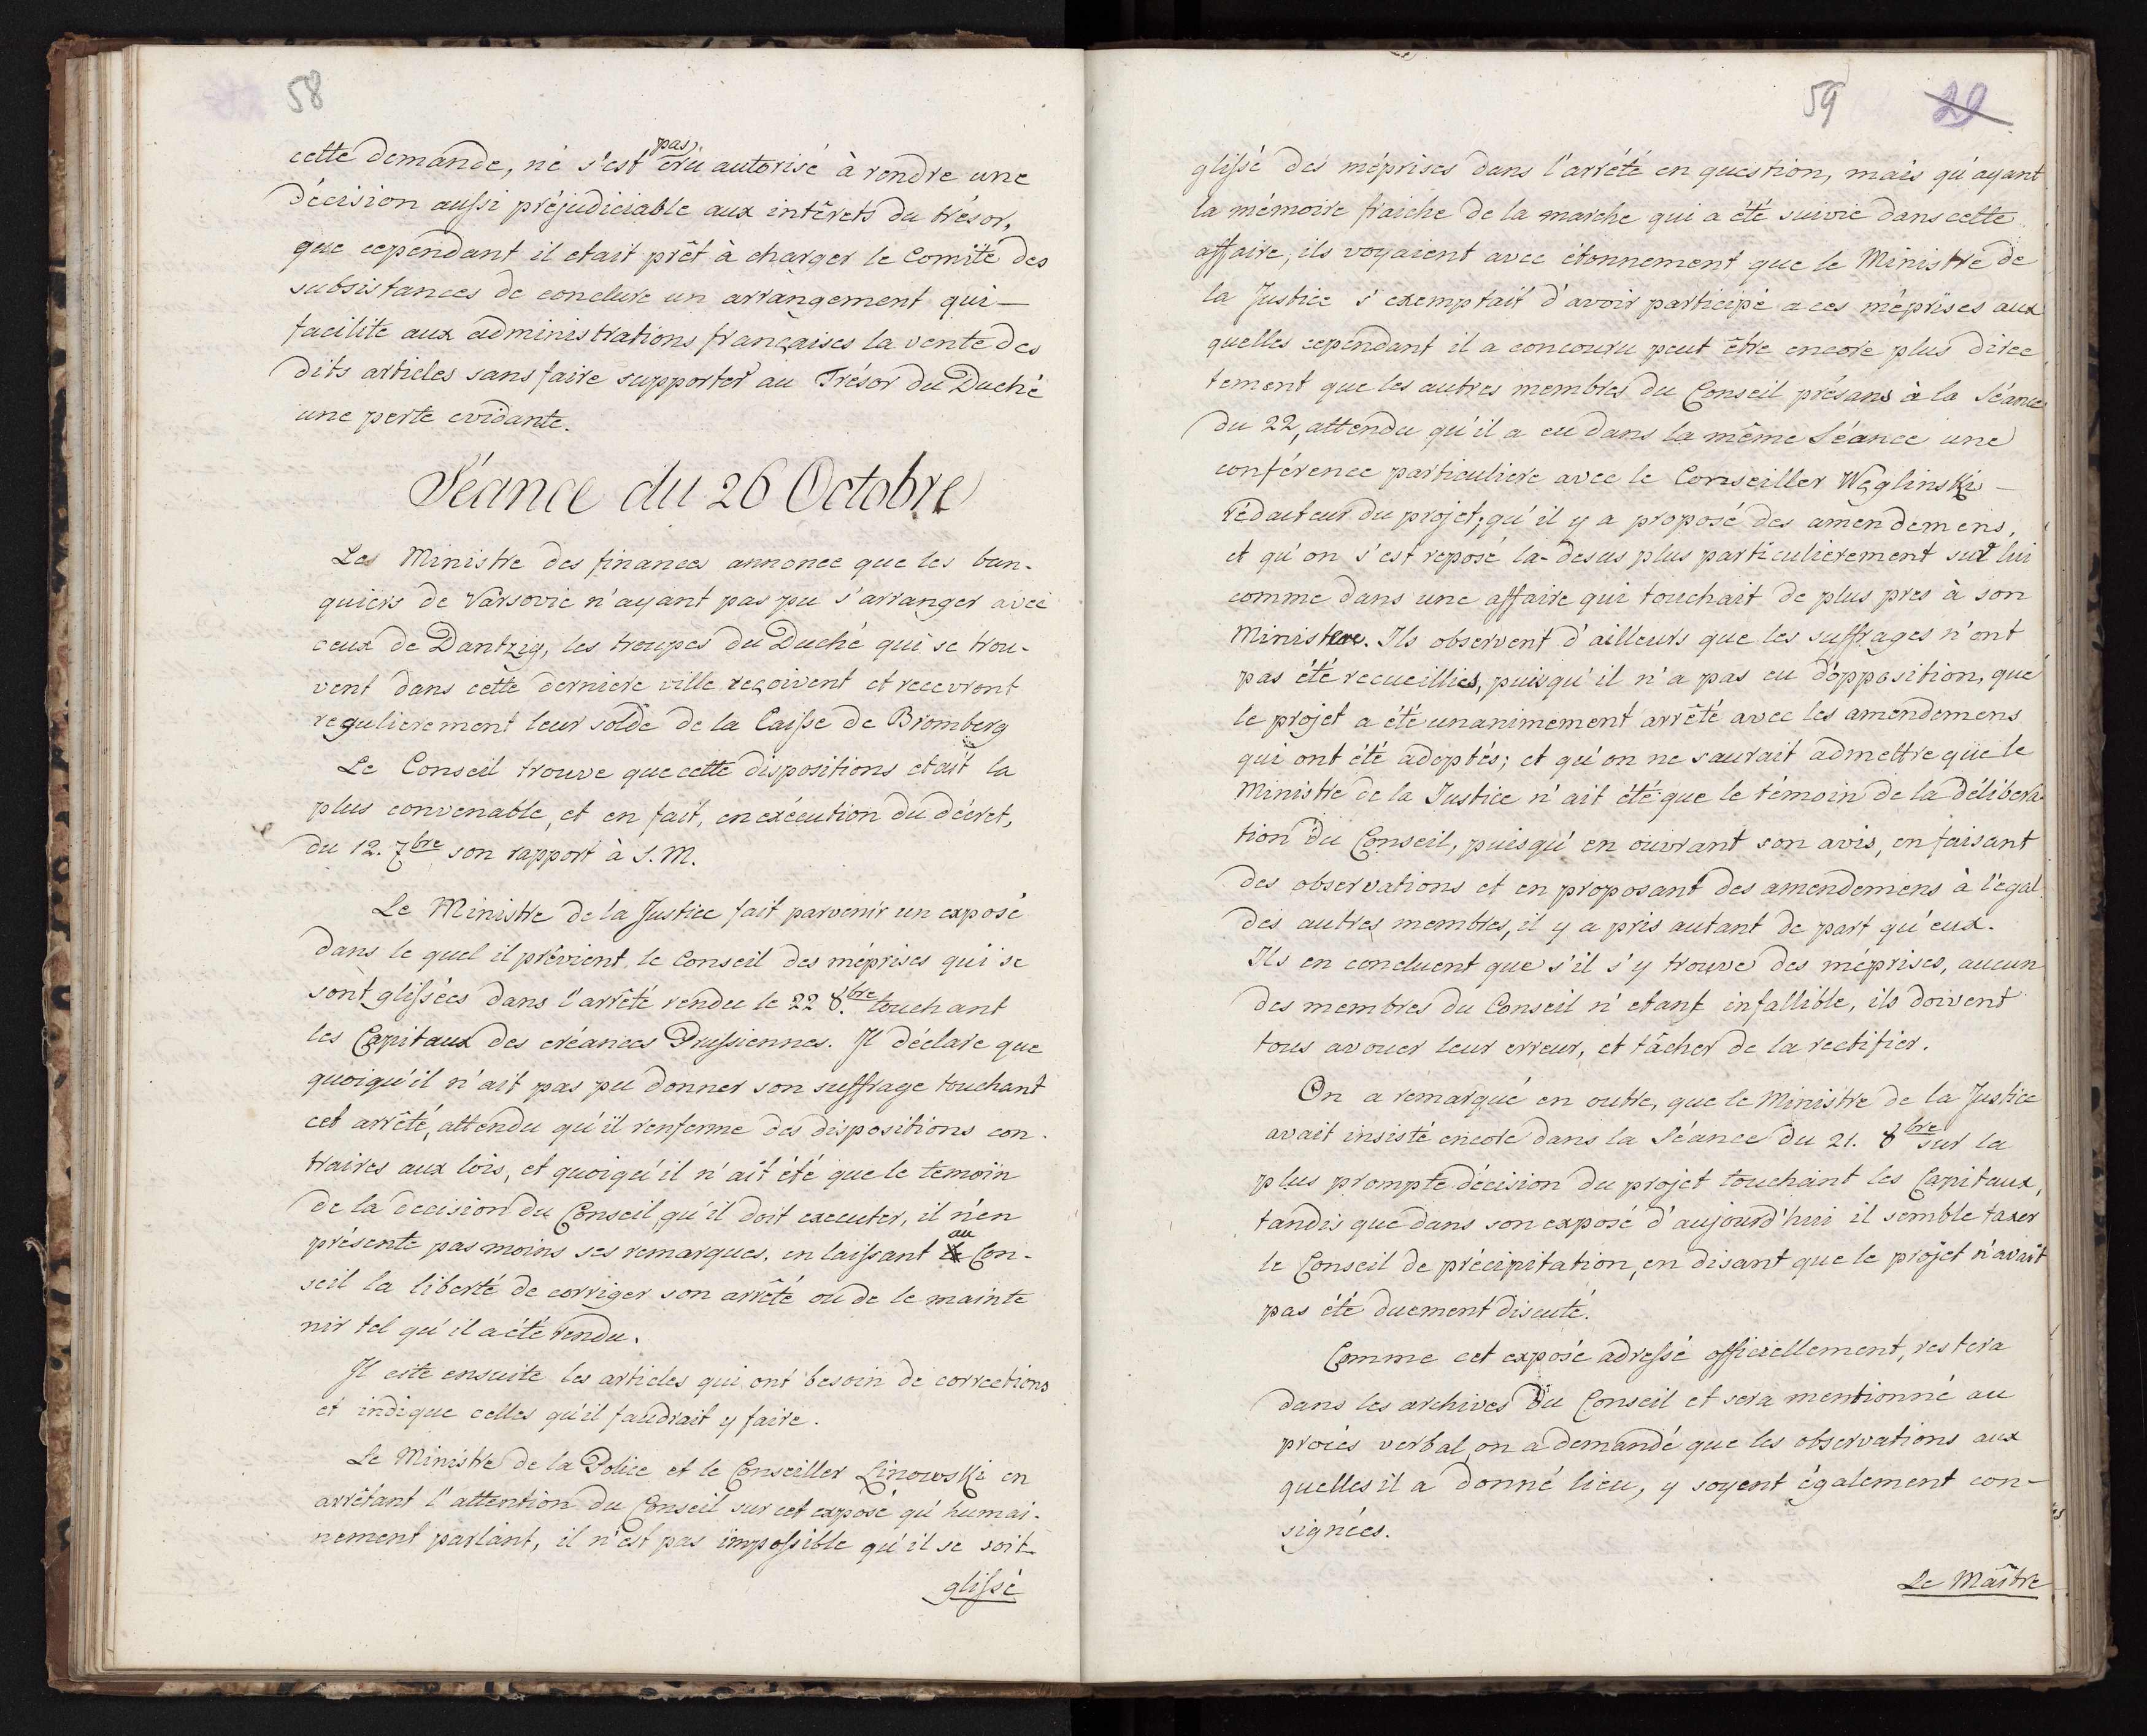 58
cette demande, ne s'est pas cru autorisé à rendre une
décision aussi préjudiciable aux intêrets du trésor,
que cependant il etait prêt à charger le Comité des
subsistances de conclure un arrangement qui
facilite aux administrations françaises la vente des
dits articles sans faire supporter au Trésor du Duché
une perte evidante.
Séance du 26 Octobre
Les Ministre des finances annonce que les ban-
quiers de Varsovie n'ayant pas pu s'arranger avec
ceux de Dantzig, les troupes du Duché qui se trou-
vent dans cette derniere ville reçoivent et recevront
regulierement leur solde de la Caisse de Bromberg
Le Conseil trouve que cette dispositions etait la
plus convenable, et en fait, en exécution du décret,
du 12. 7bre son rapport à S. M.
Le Ministre de la Justice fait parvenir un exposé
dans le quel il prévient le Conseil des méprises qui se
sont glissées dans l'arrêté rendu le 22 8.bre touchant
les Capitaux des créances Prussiennes. Il déclare que
quoiqu'il n'ait pas pu donner son suffrage touchant
cet arrêté, attendu qu'il renferme des dispositions con-
traires aux lois, et quoiqu'il n'ait été que le temoin
de la decision du Conseil, qu'il doit executer, il n'en
présente pas moins ses remarques, en laissant au Con-
seil la liberté de corriger son arrêté ou de le mainte
nir tel qu'il a été rendu.
Il cite ensuite les articles qui ont besoin de corrections
et indique celles qu'il faudrait y faire.
Le Ministre de la Police et le Conseiller Linowski en
arrêtant l'attention du Conseil sur cet exposé qu'humai-
nement parlant, il n'est pas impossible qu'il se soit
glissé
59 29
glissé des méprises dans l'arrété en question, mais qu'ayant
la mémoire fraiche de la marche qui a été suivie dans cette
affaire, ils voyaient avec étonnement que le Ministre de
la Justice s'exemptait d'avoir participé a ces méprises aux
quelles cependant il a concouru peut être encore plus direc
tement que les autres membres du Conseil présans à la Séance
du 22, attendu qu'il a eu dans la même Séance une
conférence particuliere avec le Conseiller Węglinski
rédacteur du projet; qu'il y a proposé des amendemens,
et qu'on s'est reposé la-desus plus particulierement sur lui
comme dans une affaire qui touchait de plus pres à son
Ministere. Ils observent d'ailleurs que les suffrages n'ont
pas été recueillies, puisqu'il n'a pas eu d'opposition, que
le projet a été unanimement arrêté avec les amendemens
qui ont été adoptés; et qu'on ne saurait admettre que le
Ministre de la Justice n'ait été que le témoin de la délibera
tion du Conseil, puisqu'en ouvrant son avis, en faisant
des observations et en proposant des amendemens à l'egal
des autres membres, il y a pris autant de part qu'eux.
Ils en concluent que s'il s'y trouve des méprises, aucun
des membres du Conseil n'etant infallible, ils doivent
tous avouer leur erreur, et tâcher de la rectifier.
On a remarqué en outre, que le Ministre de la Justice
avait insisté encore dans la Séance du 21. 8bre sur la
plus prompte décision du projet touchant les Capitaux,
tandis que dans son exposé d'aujourd'hui il semble taxer
le Conseil de précipitation, en disant que le projet n'avait
pas été duement discuté.
Comme cet exposé adressé officiellement, restera
dans les archives du Conseil et sera mentionné au
procés verbal, on a demandé que les observations aux
quelles il a donné lieu, y soyent également con-
signées.
Le Maître